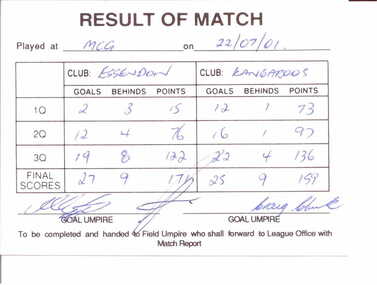 RESULT OF MATCH
Played at MCG on 22/07/01
CLUB: ESSENDON CLUB: KANGAROOS
GOALS BEHINDS POINTS GOALS BEHINDS POINTS
1Q 2 3 15 12 1 73
2Q 12 4 76 16 1 97
3Q 19 8 122 22 4 136
FINAL SCORES 27 9 171 25 9 159
GOAL UMPIRE GOAL UMPIRE
To be completed and handed to Field Umpire who shall forward to League Office with
Match Report